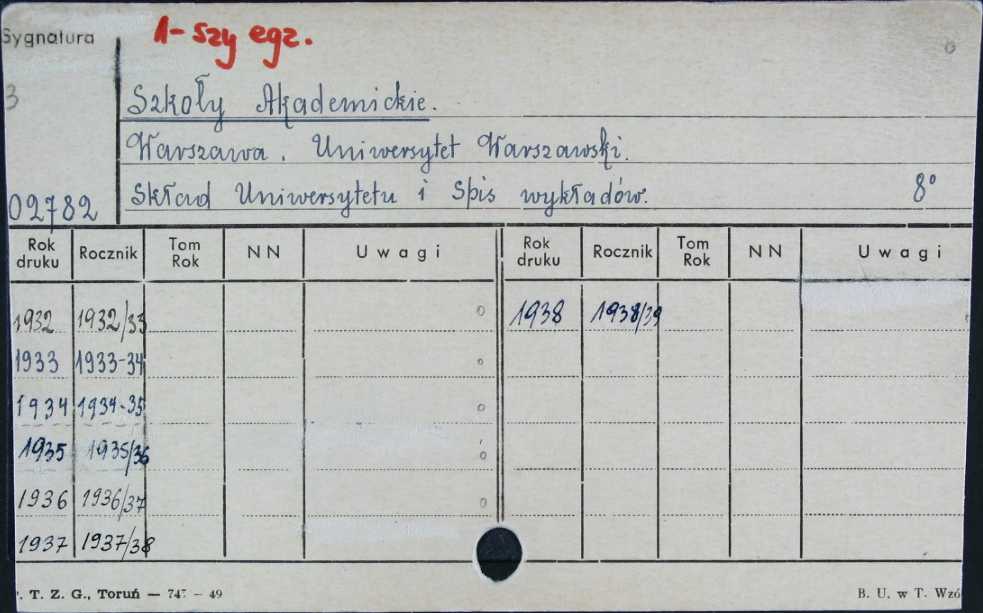 Sygnatura
1-szy egz.
3
Szkoły Akademickie.
Warszawa. Uniwersytet Warszawski.
02782 Skład Uniwersytetu i Spis wykładów. 8°
Rok druku Rocznik Tom Rok NN Uwagi Rok druku Rocznik Tom Rok NN Uwagi
1932 1932/33 1938 1938/39
1933 1933-34
1934 1934-35
1935 1935/36
1936 1936/37
1937 1937/38
T. Z. G., Toruń — 49 B. U. w T. Wzó